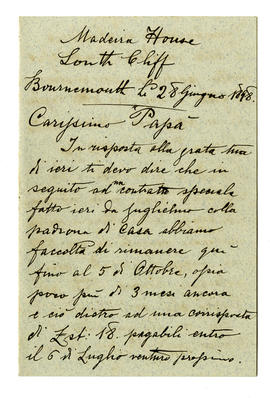 Madeira House
South Cliff
Bournemouth lì 28 Giugno 1898.
Carissimo Papà
In risposta alla grata tua
di ieri ti devo dire che in
seguito ad un contratto speciale
fatto ieri da Guglielmo colla
padrona di casa abbiamo
facoltà di rimanere qui
fino al 5 di Ottobre, ossia
poco più di 3 mesi ancora
e ciò dietro ad una corrisposta
di £st. 18. pagabili entro
il 6 di Luglio venturo prossimo.